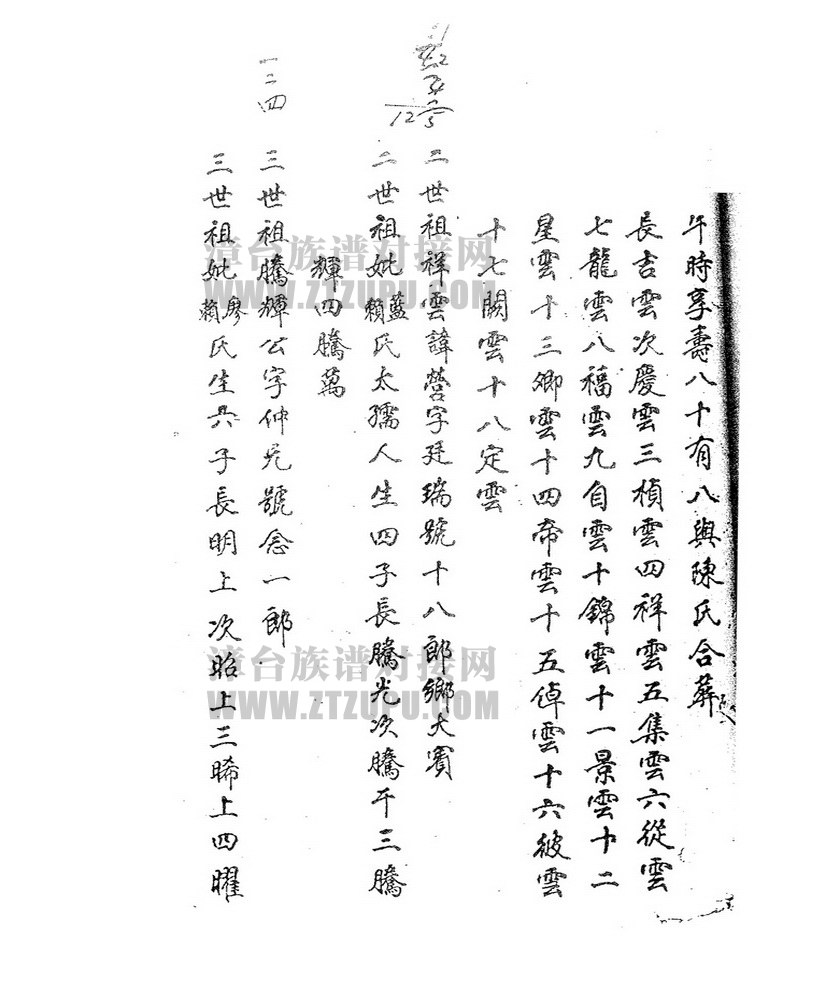 午時享壽八十有八與陳氏合葬
長吉雲次慶雲三楨雲四祥雲五集雲六從雲
七龍雲八福雲九自雲十錦雲十一景雲十二
星雲十三卿雲十四帝雲十五倬雲十六彼雲
十七開雲十八定雲
二世祖祥雲諱營字廷瑞號十八郎鄉大賓
二世祖妣藍賴氏太孺人生四子長騰光次騰干三騰
輝四騰萬
三世祖騰輝公字仲光號念一郎
三世祖妣廖賴氏生六子長明上次昭上三晞上四曜
一二四
12
漳台族谱对接网
WWW.ZTZUPU.COM
漳台族谱对接网
WWW.ZTZUPU.COM